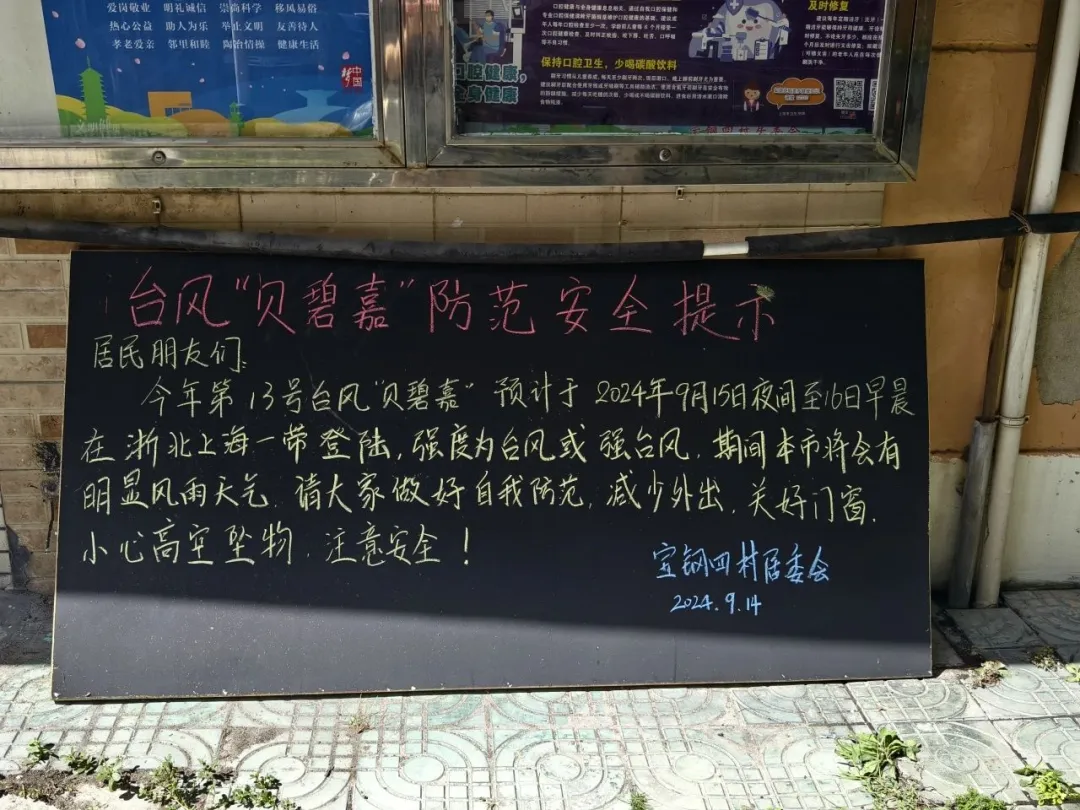 爱岗敬业 明礼诚信 崇尚科学 移风易俗
热心公益 助人为乐 举止文明 友善待人
孝老爱亲 邻里和睦 陶冶情操 健康生活
中国梦
口腔健康,
全身健康
保持口腔卫生,少喝碳酸饮料
及时修复
台风“贝碧嘉”防范安全提示
居民朋友们:
今年第13号台风“贝碧嘉”预计于2024年9月15日夜间至16日早晨
在浙北上海一带登陆,强度为台风或强台风.期间本市将会有
明显风雨天气.请大家做好自我防范,减少外出,关好门窗,
小心高空坠物.注意安全!
宝钢四村居委会
2024.9.14